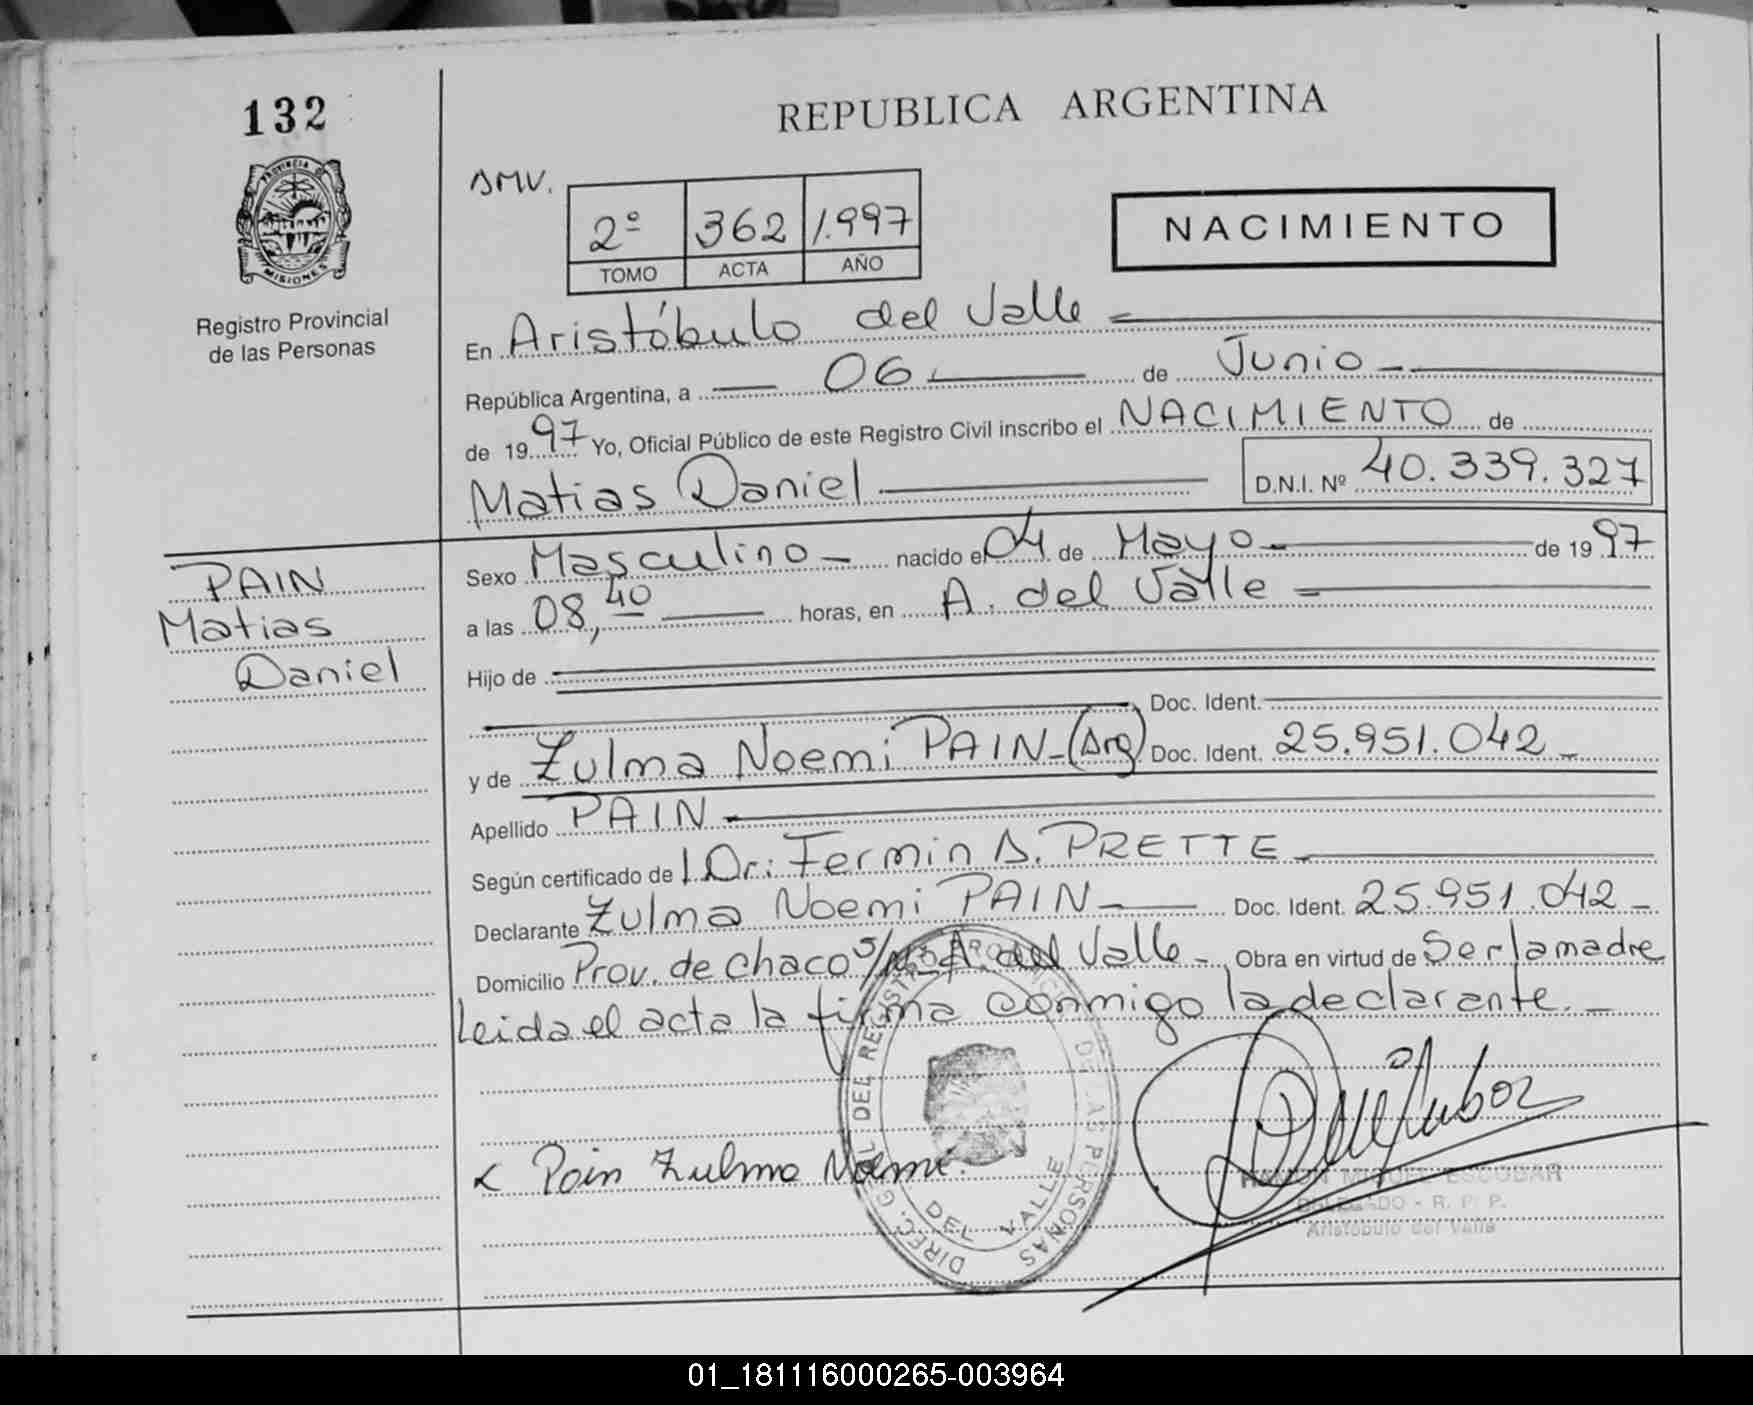 132
PROVINCIA DE
MISIONES
Registro Provincial
de las Personas
REPUBLICA ARGENTINA
2º 362 1.997
TOMO ACTA AÑO
NACIMIENTO
En Aristóbulo del Valle
República Argentina, a 06 de Junio
de 1997 Yo, Oficial Público de este Registro Civil inscribo el NACIMIENTO de
Matias Daniel D.N.I. Nº 40.339.327
PAIN
Matias
Daniel
Sexo Masculino nacido el 04 de Mayo de 1997
a las 08,40 horas, en A. del Valle
Hijo de
Doc. Ident.
y de Zulma Noemi PAIN-(Arg) Doc. Ident. 25.951.042
Apellido PAIN
Según certificado de Dr: Fermin A. PRETTE
Declarante Zulma Noemi PAIN Doc. Ident. 25.951.042
Domicilio Prov. de chaco s/Nº A. del Valle Obra en virtud de Ser la madre
Leida el acta la firma conmigo la declarante.
Pain Zulma Noemi.
DIREC. G. DEL REGISTRO PROVINCIAL DE LAS PERSONAS
DEL VALLE
RAMON MIGUEL ESCOBAR
DELEGADO - R. P. P.
Aristobulo del Valle
01_181116000265-003964